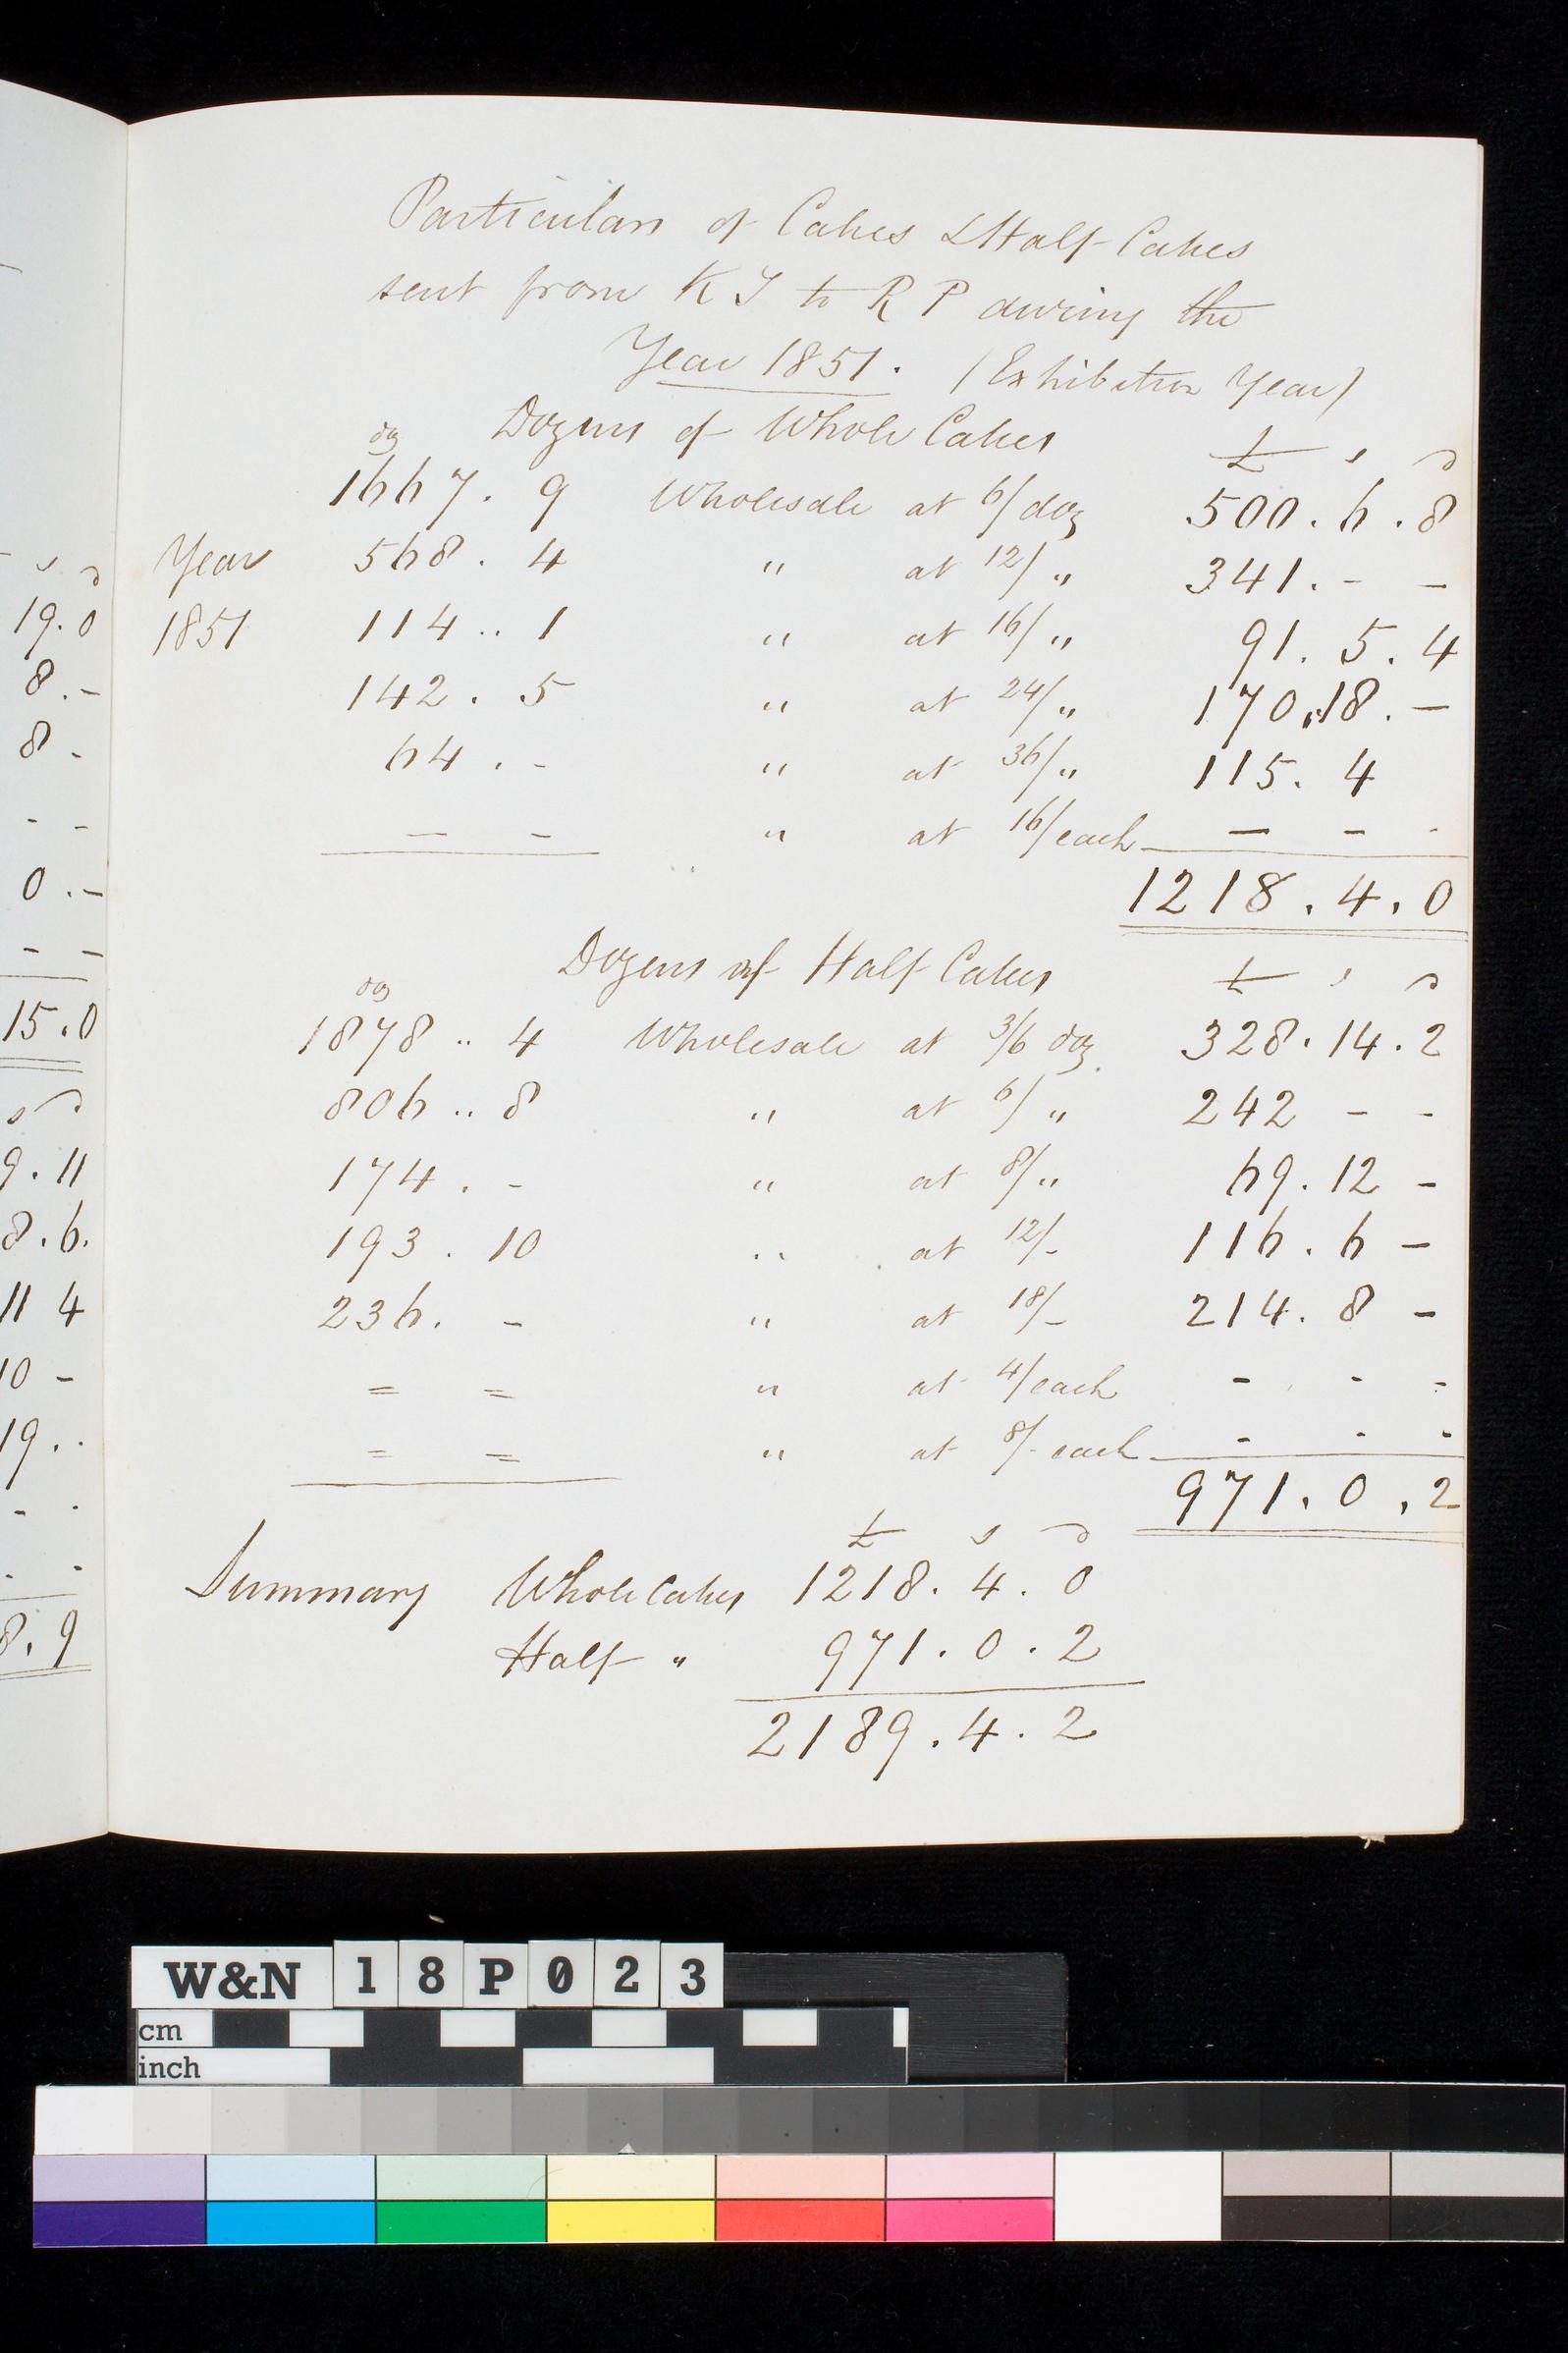 Particulars of Cakes & Half Cakes
sent from K T to R P during the
Year 1851. (Exhibition Year)
doz Dozens of Whole Cakes £ s d
1667. 9 Wholesale at 6/ doz 500. 6. 8
Year 568. 4 " at 12/ " 341. - -
1851 114.. 1 " at 16/ " 91. 5. 4
142. 5 " at 24/ " 170.18. -
64. - " at 36/ " 115. 4
— - " at 16/ each — - -
1218. 4. 0
Dozens of Half Cakes £ s d
doz
1878.. 4 Wholesale at 3/6 doz. 328. 14. 2
806.. 8 " at 6/ " 242 - -
174. - " at 8/ " 69. 12 -
193. 10 " at 12/- 116. 6 -
236. - " at 18/- 214. 8 -
= = " at 4/ each - - -
= = " at 8/- each - - -
971. 0. 2
£ s d
Summary Whole Cakes 1218. 4. 0
Half " 971. 0. 2
2189. 4. 2
s d
19. 0
8. -
8 -
- -
0. -
- -
15. 0
s d
9. 11
8. 6.
11 4
10 -
19..
- .
. .
8. 9
W&N 18P023
cm
inch